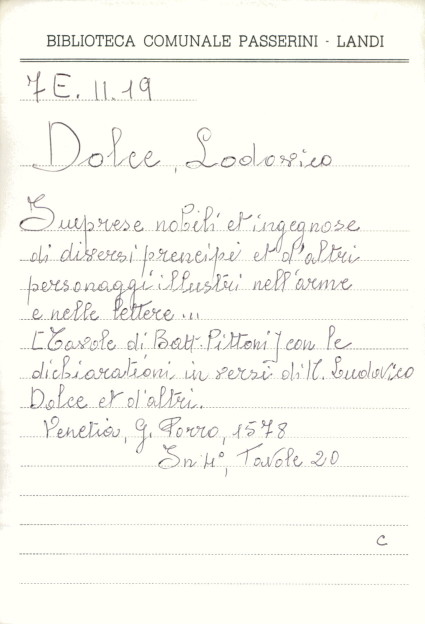 BIBLIOTECA COMUNALE PASSERINI - LANDI
7 E. II. 19
Dolce, Lodovico
Imprese nobili et ingegnose
di diversi prencipi et d'altri
personaggi illustri nell'arme
e nelle lettere...
[Tavole di Batt. Pittoni] con le
dichiarationi in versi di M. Ludovico
Dolce et d'altri.
Venetia, G. Porro, 1578
In 4°, Tavole 20
c